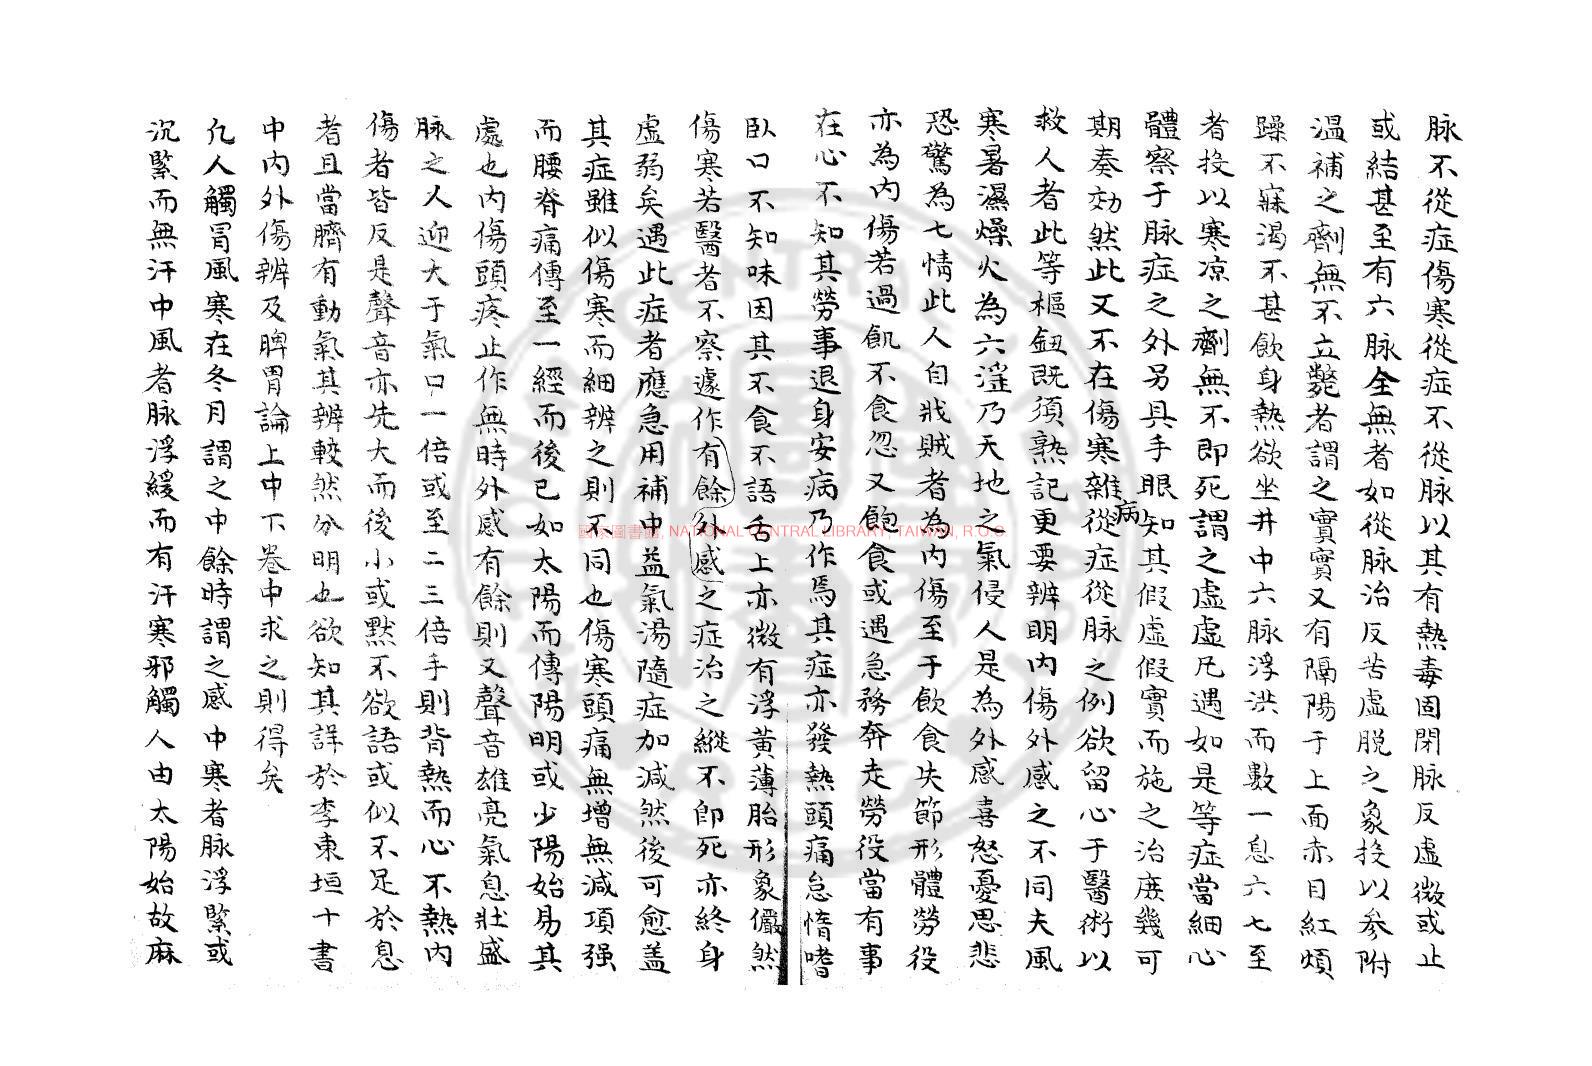 脉不從症傷寒從症不從脉以其有熱毒固閉脉反虛微或止
或結甚至有六脉全無者如從脉治反苦虛脫之象投以參附
溫補之劑無不立斃者謂之實實又有隔陽于上面赤目紅煩
躁不寐渴不甚飲身熱欲坐井中六脉浮洪而數一息六七至
者投以寒凉之劑無不即死謂之虛虛凡遇如是等症當細心
體察于脉症之外另具手眼知其假虛假實而施之治庶幾可
期奏効然此又不在傷寒雜病從症從脉之例欲留心于醫術以
救人者此等樞鈕既須熟記更要辨明內傷外感之不同夫風
寒暑濕燥火為六淫乃天地之氣侵人是為外感喜怒憂思悲
恐驚為七情此人自戕賊者為內傷至于飲食失節形體勞役
亦為內傷若過飢不食忽又飽食或遇急務奔走勞役當有事
在心不知其勞事退身安病乃作焉其症亦發熱頭痛怠惰嗜
臥口不知味因其不食不語舌上亦微有浮黃薄胎形象儼然
傷寒若醫者不察遽作有餘外感之症治之縱不卽死亦終身
虛弱矣遇此症者應急用補中益氣湯隨症加減然後可愈盖
其症雖似傷寒而細辨之則不同也傷寒頭痛無增無減項强
而腰脊痛傳至一經而後已如太陽而傳陽明或少陽始易其
處也內傷頭疼止作無時外感有餘則又聲音雄亮氣息壯盛
脉之人迎大于氣口一倍或至二三倍手則背熱而心不熱內
傷者皆反是聲音亦先大而後小或默不欲語或似不足於息
者且當臍有動氣其辨較然分明也欲知其詳於李東垣十書
中內外傷辨及脾胃論上中下卷中求之則得矣
凡人觸冒風寒在冬月謂之中餘時謂之感中寒者脉浮緊或
沉緊而無汗中風者脉浮緩而有汗寒邪觸人由太陽始故麻
國家圖書館, NATIONAL CENTRAL LIBRARY, TAIWAN, R.O.C